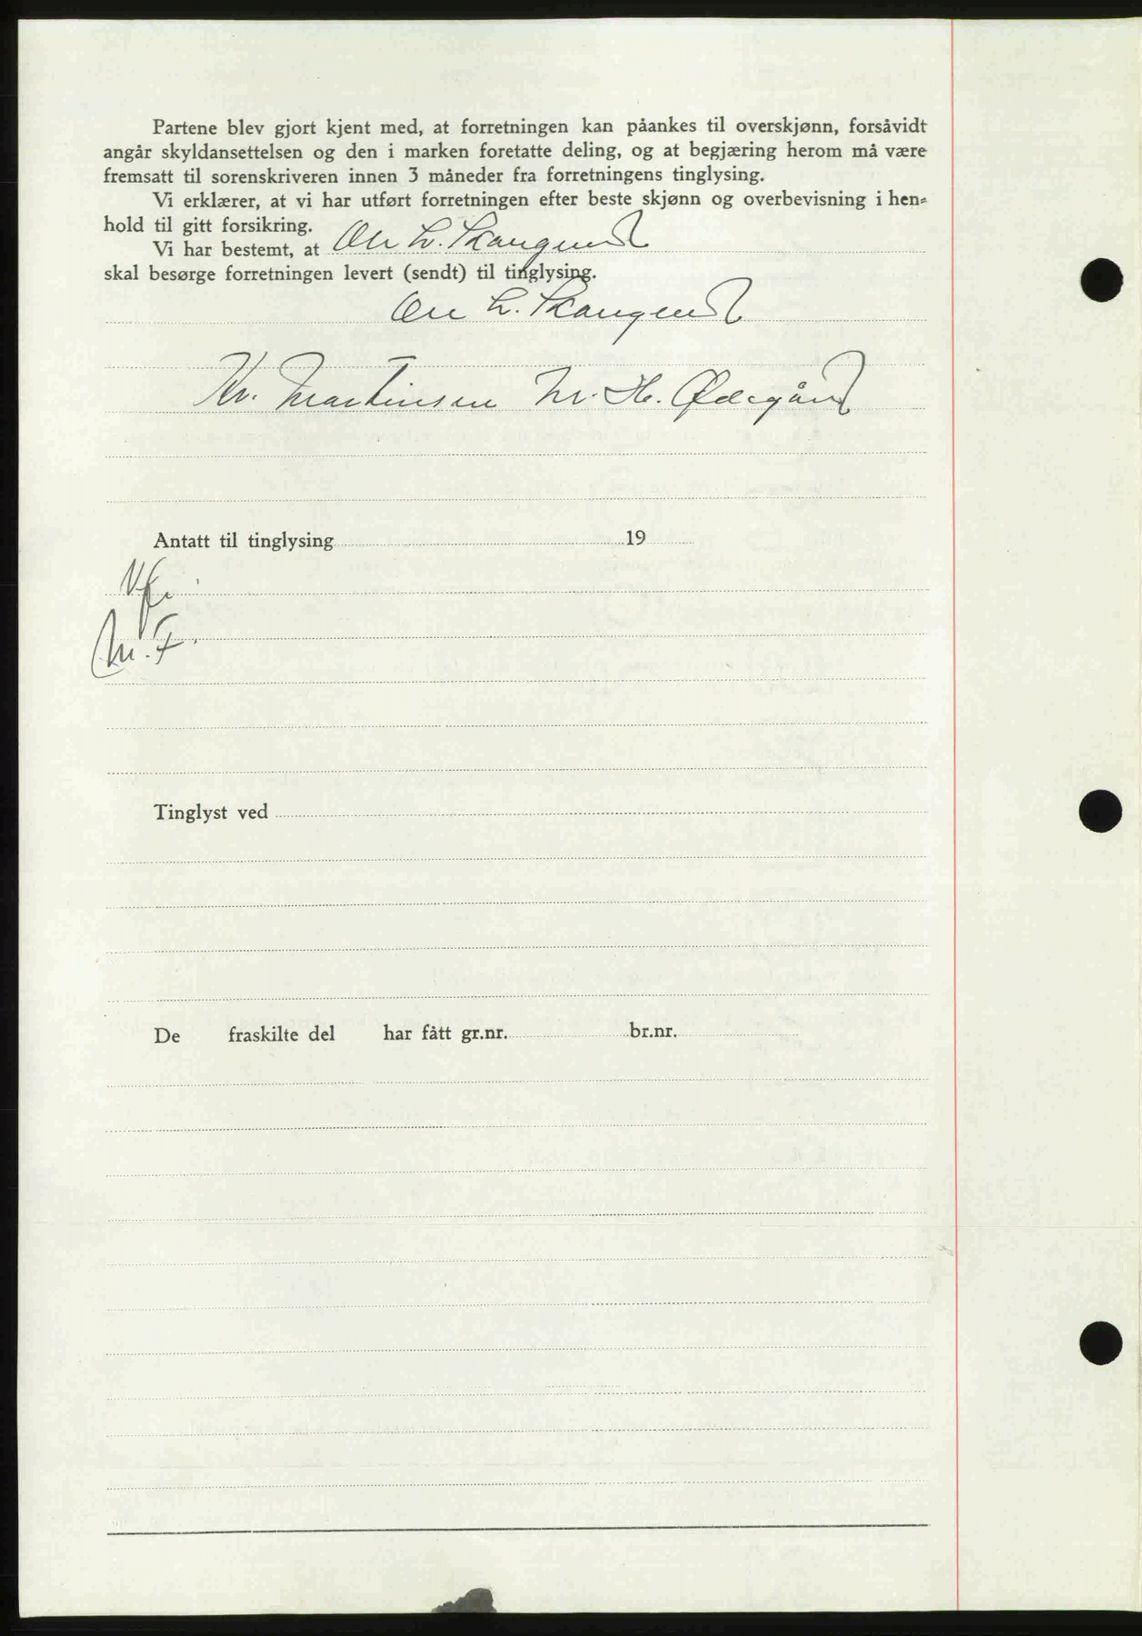 Partene blev gjort kjent med, at forretningen kan påankes til overskjønn, forsåvidt
angår skyldansettelsen og den i marken foretatte deling, og at begjæring herom må være
fremsatt til sorenskriveren innen 3 måneder fra forretningens tinglysing.
Vi erklærer, at vi har utført forretningen efter beste skjønn og overbevisning i hen-
hold til gitt forsikring.
Vi har bestemt, at Ole L. Skaugerud
skal besørge forretningen levert (sendt) til tinglysing.
Ole L. Skaugerud
Kr. Martinsen M. H. Ødegård
Antatt til tinglysing 19
M. F.
Tinglyst ved
De fraskilte del har fått gr.nr. br.nr.